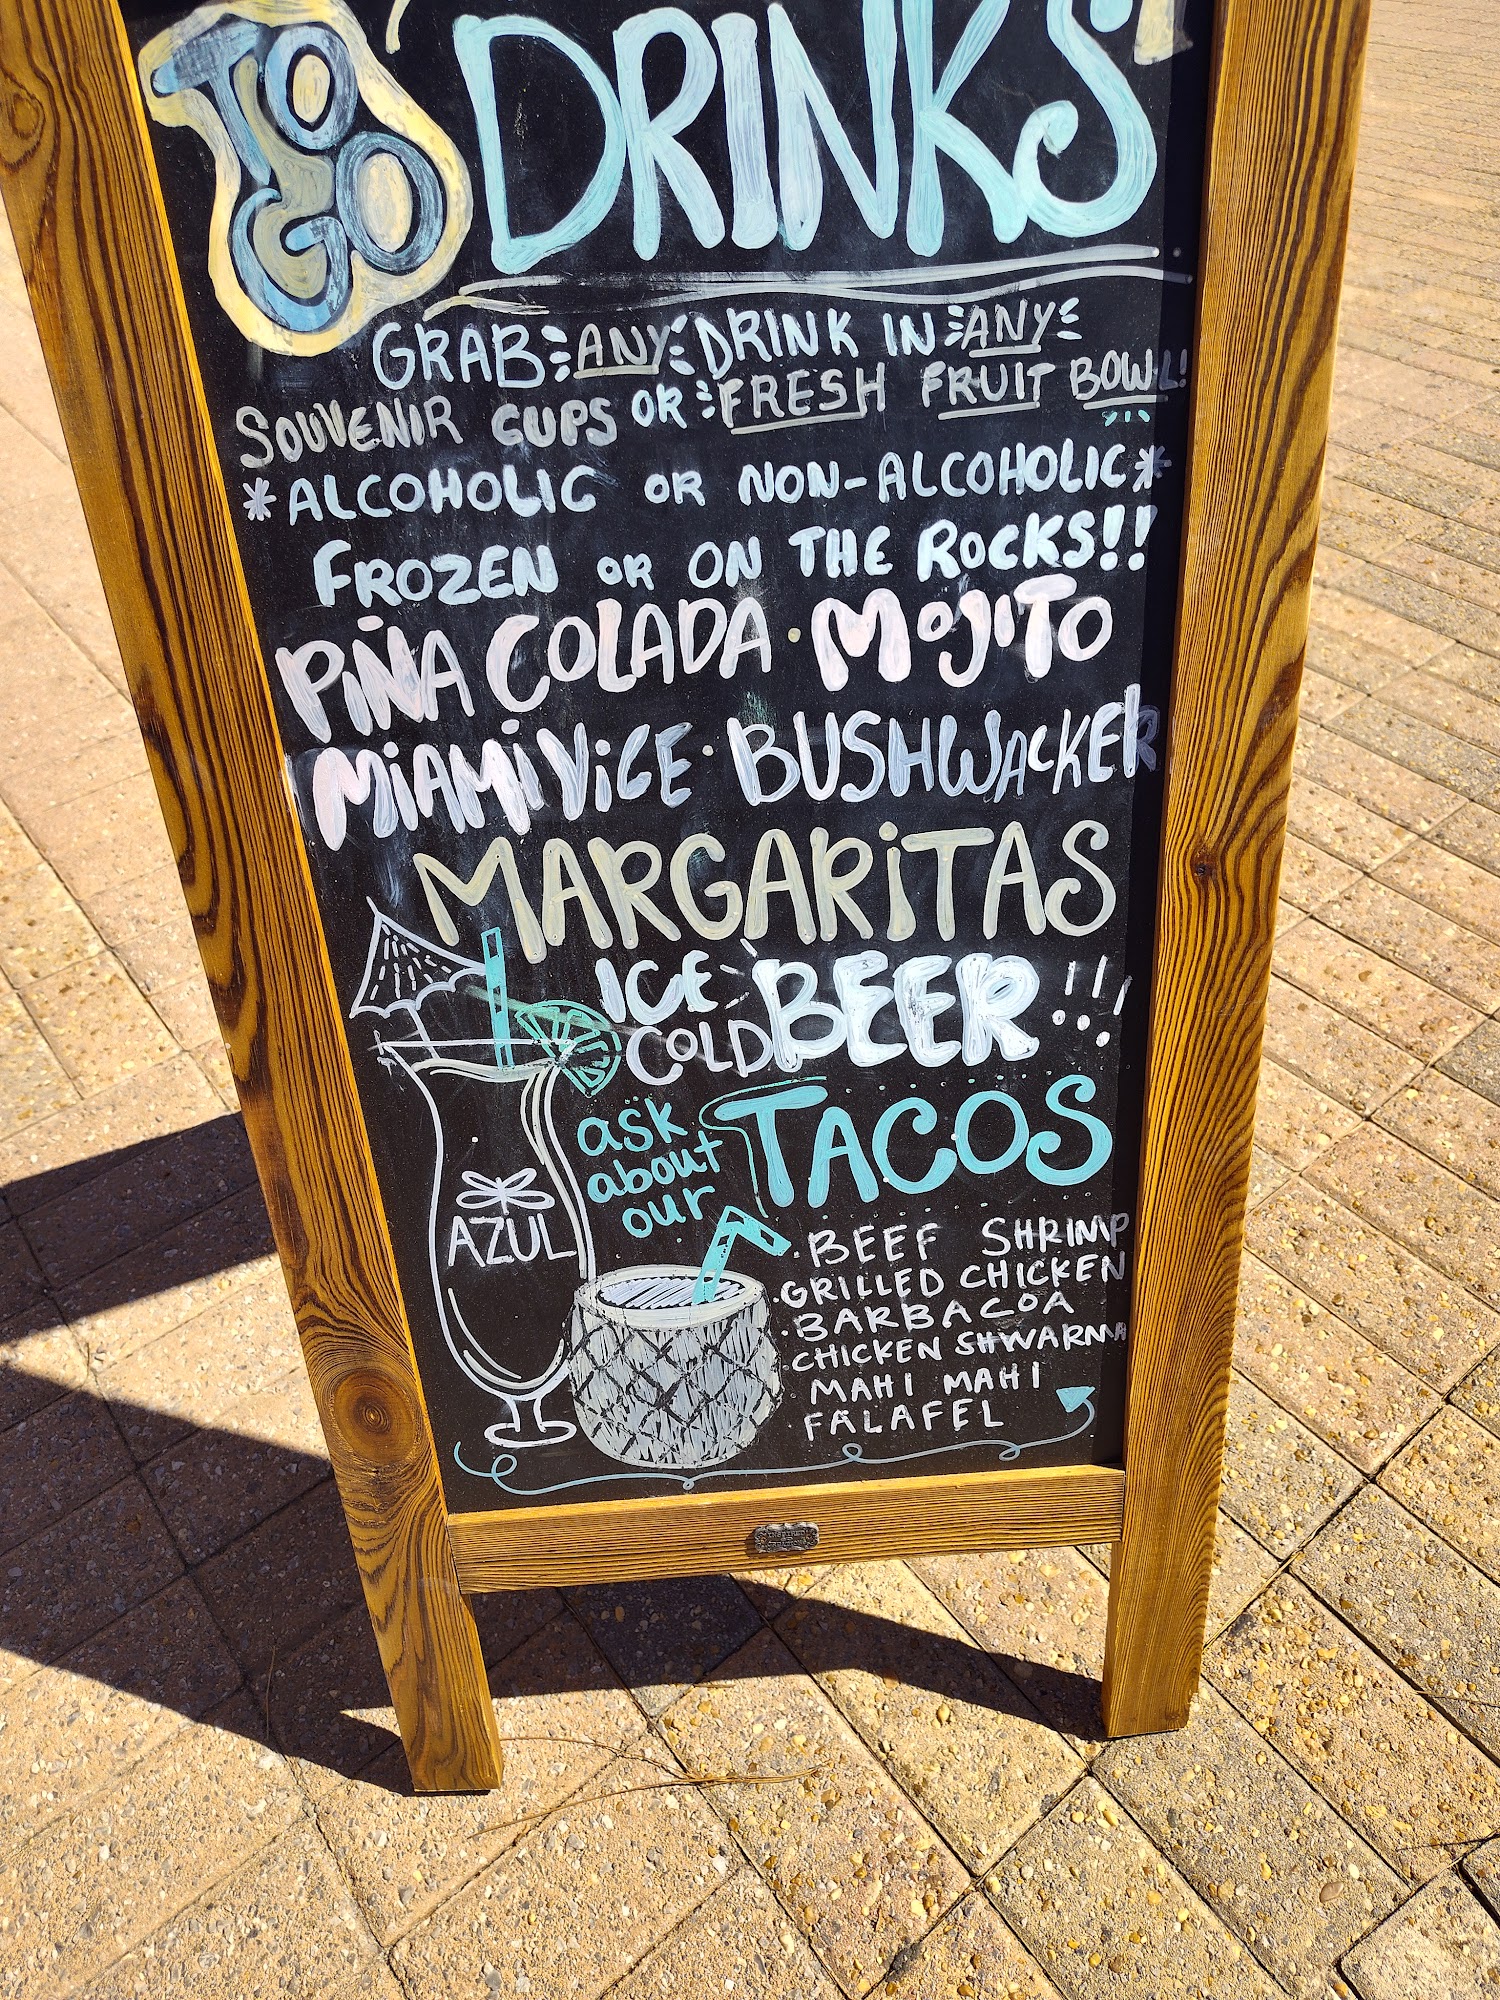 TO GO
DRINKS
GRAB ANY DRINK IN ANY
SOUVENIR CUPS OR FRESH FRUIT BOWL!
*ALCOHOLIC OR NON-ALCOHOLIC*
FROZEN OR ON THE ROCKS!!
PIÑA COLADA · MOJITO
MIAMI VICE · BUSHWACKER
MARGARITAS
ICE COLD BEER!!!
ask about our TACOS
AZUL
· BEEF SHRIMP
· GRILLED CHICKEN
· BARBACOA
· CHICKEN SHWARMA
MAHI MAHI
FALAFEL